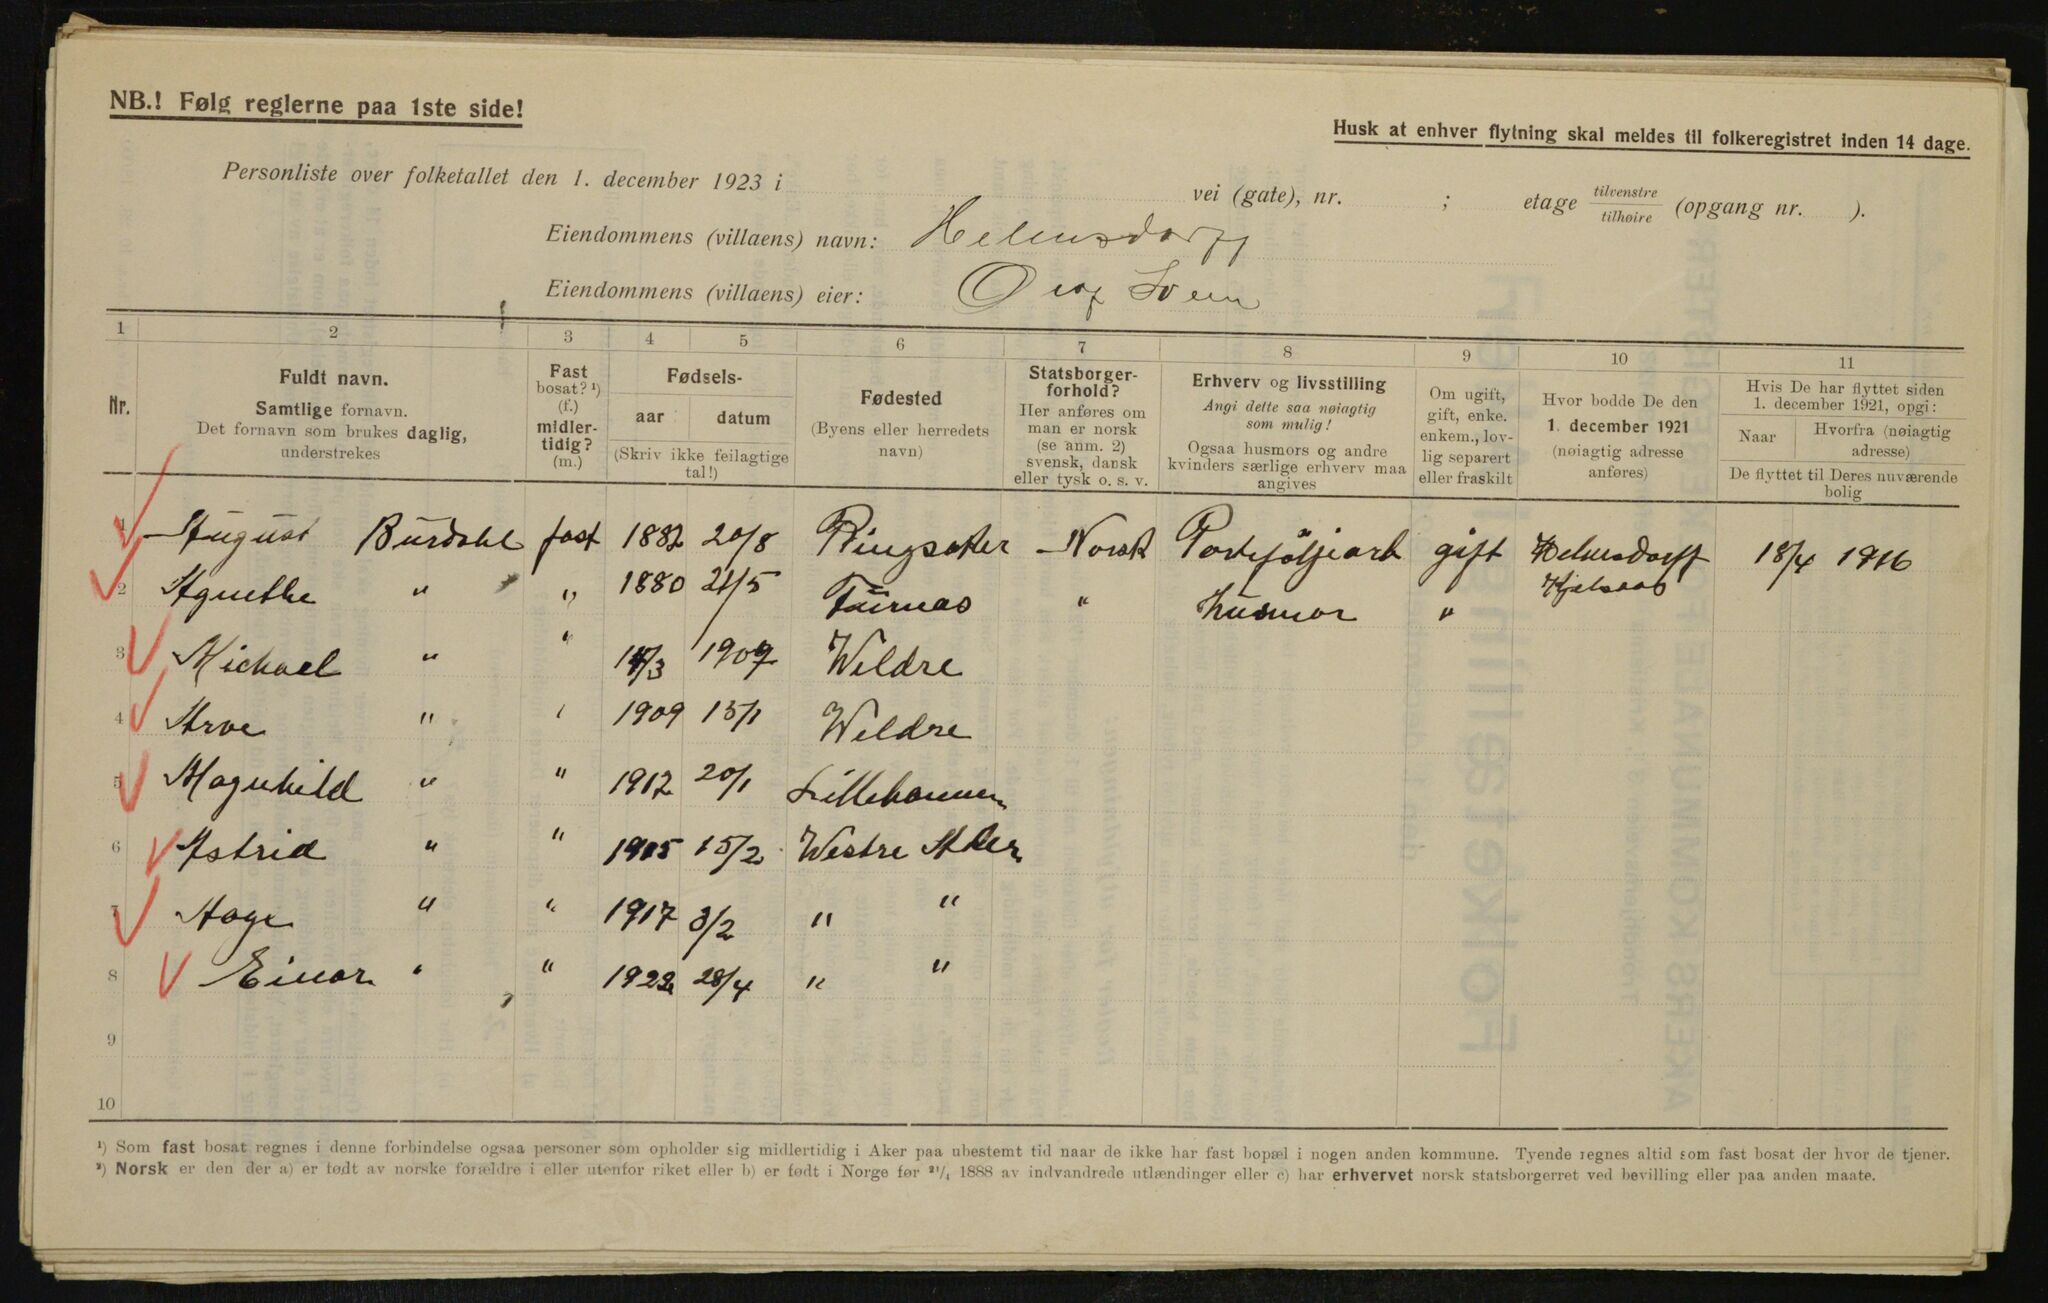 NB.! Følg reglerne paa 1ste side!
Husk at enhver flytning skal meldes til folkeregistret inden 14 dage.
Personliste over folketallet den 1. december 1923 i vei (gate), nr. ; etage tilvenstre tilhøire (opgang nr. ).
Eiendommens (villaens) navn: Helmsdorff
Eiendommens (villaens) eier: Olaf Sveen
1 2 3 4 5 6 7 8 9 10 11
Nr.
Fuldt navn.
Samtlige fornavn.
Det fornavn som brukes daglig,
understrekes
Fast
bosat? ¹)
(f.)
midler-
tidig?
(m.)
Fødsels-
aar datum
(Skriv ikke feilagtige
tal!)
Fødested
(Byens eller herredets
navn)
Statsborger-
forhold?
Her anføres om
man er norsk
(se anm. 2)
svensk, dansk
eller tysk o. s. v.
Erhverv og livsstilling
Angi dette saa nøiagtig
som mulig!
Ogsaa husmors og andre
kvinders særlige erhverv maa
angives
Om ugift,
gift, enke.
enkem., lov-
lig separert
eller fraskilt
Hvor bodde De den
1. december 1921
(nøiagtig adresse
anføres)
Hvis De har flyttet siden
1. december 1921, opgi:
Naar Hvorfra (nøiagtig
adresse)
De flyttet til Deres nuværende
bolig
1 August Burdahl fast 1882 20/8 Ringsaker Norsk Porteføljearb gift Helmsdorff 18/4 1916
2 Agnethe " " 1880 21/5 Furnas " Husmor " Kjelsaas
3 Michael " " 14/3 1907 Weldre
4 Arve " " 1909 15/1 Weldre
5 Magnhild " " 1912 20/1 Lillehammer
6 Astrid " " 1915 15/2 Westre Aker
7 Aage " " 1917 3/2 " "
8 Einar " " 1922 28/4 " "
9
10
¹) Som fast bosat regnes i denne forbindelse ogsaa personer som opholder sig midlertidig i Aker paa ubestemt tid naar de ikke har fast bopæl i nogen anden kommune. Tyende regnes altid som fast bosat der hvor de tjener.
²) Norsk er den der a) er født av norske forældre i eller utenfor riket eller b) er født i Norge før ²¹/₄ 1888 av indvandrede utlændinger eller c) har erhvervet norsk statsborgerret ved bevilling eller paa anden maate.